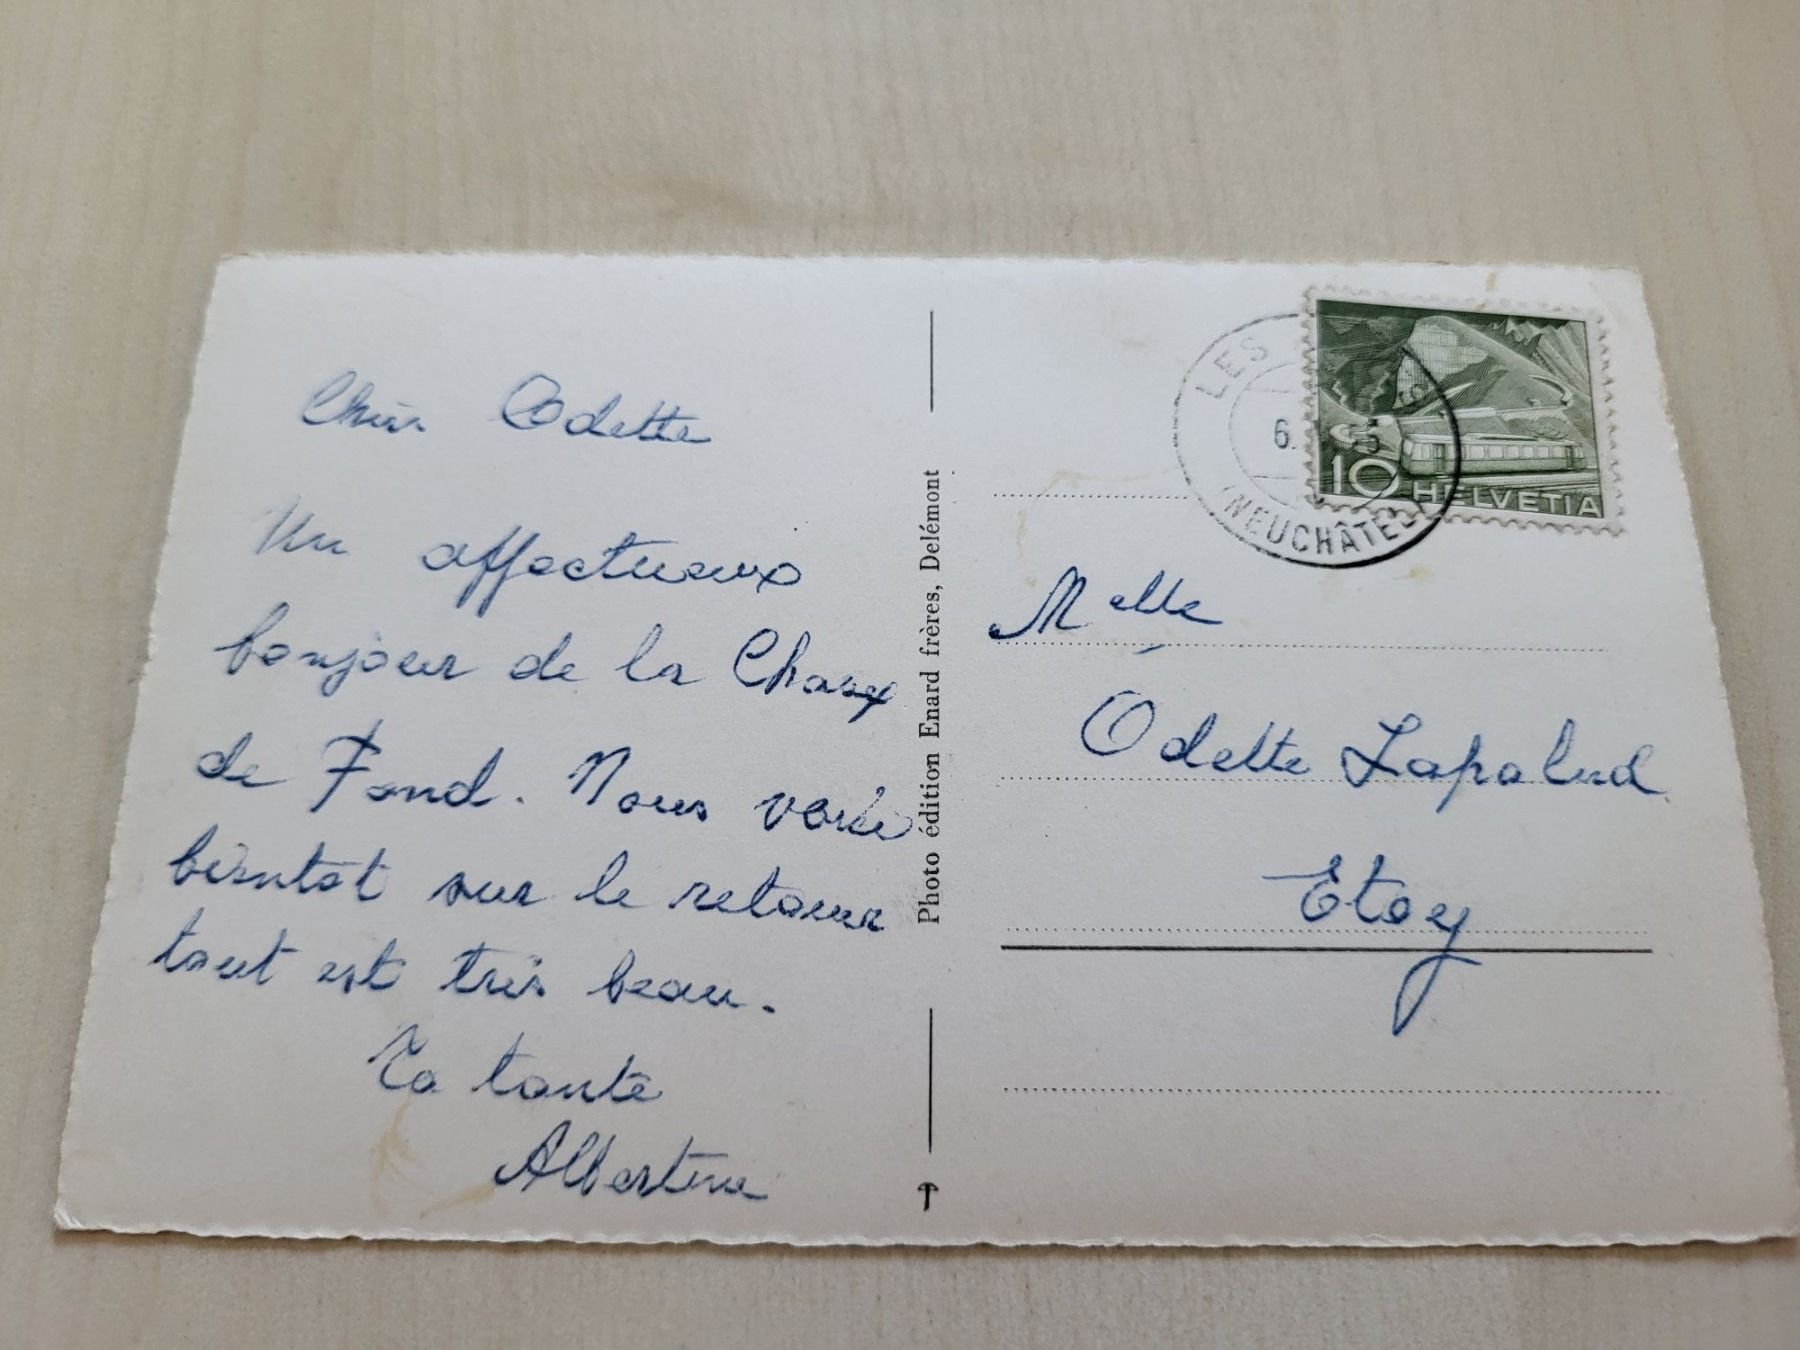 Chère Odette
Un affectueux
bonjour de la Chaux
de Fond. Nous voici
bientôt sur le retour
tout est très beau.
Ta tante
Albertine
Photo édition Enard frères, Delémont
LES
6.
(NEUCHÂTEL
10 HELVETIA
Melle
Odette Lapalud
Etoy